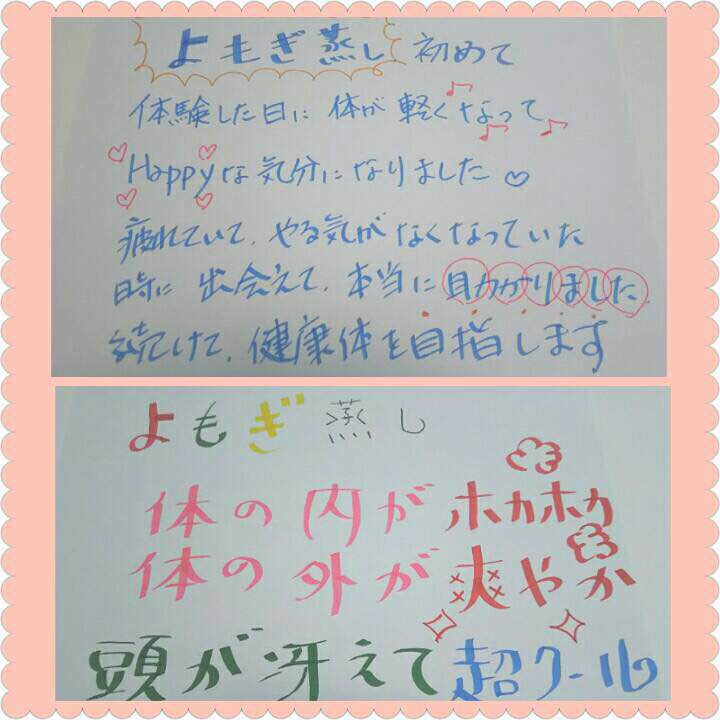 よもぎ蒸し 初めて
体験した日に 体が 軽くなって
Happyな気分になりました
疲れていて、やる気がなくなっていた
時に 出会えて、本当に助かりました
続けて、健康体を目指します
よもぎ蒸し
体の内がホカホカ
体の外が爽やか
頭が冴えて超クール